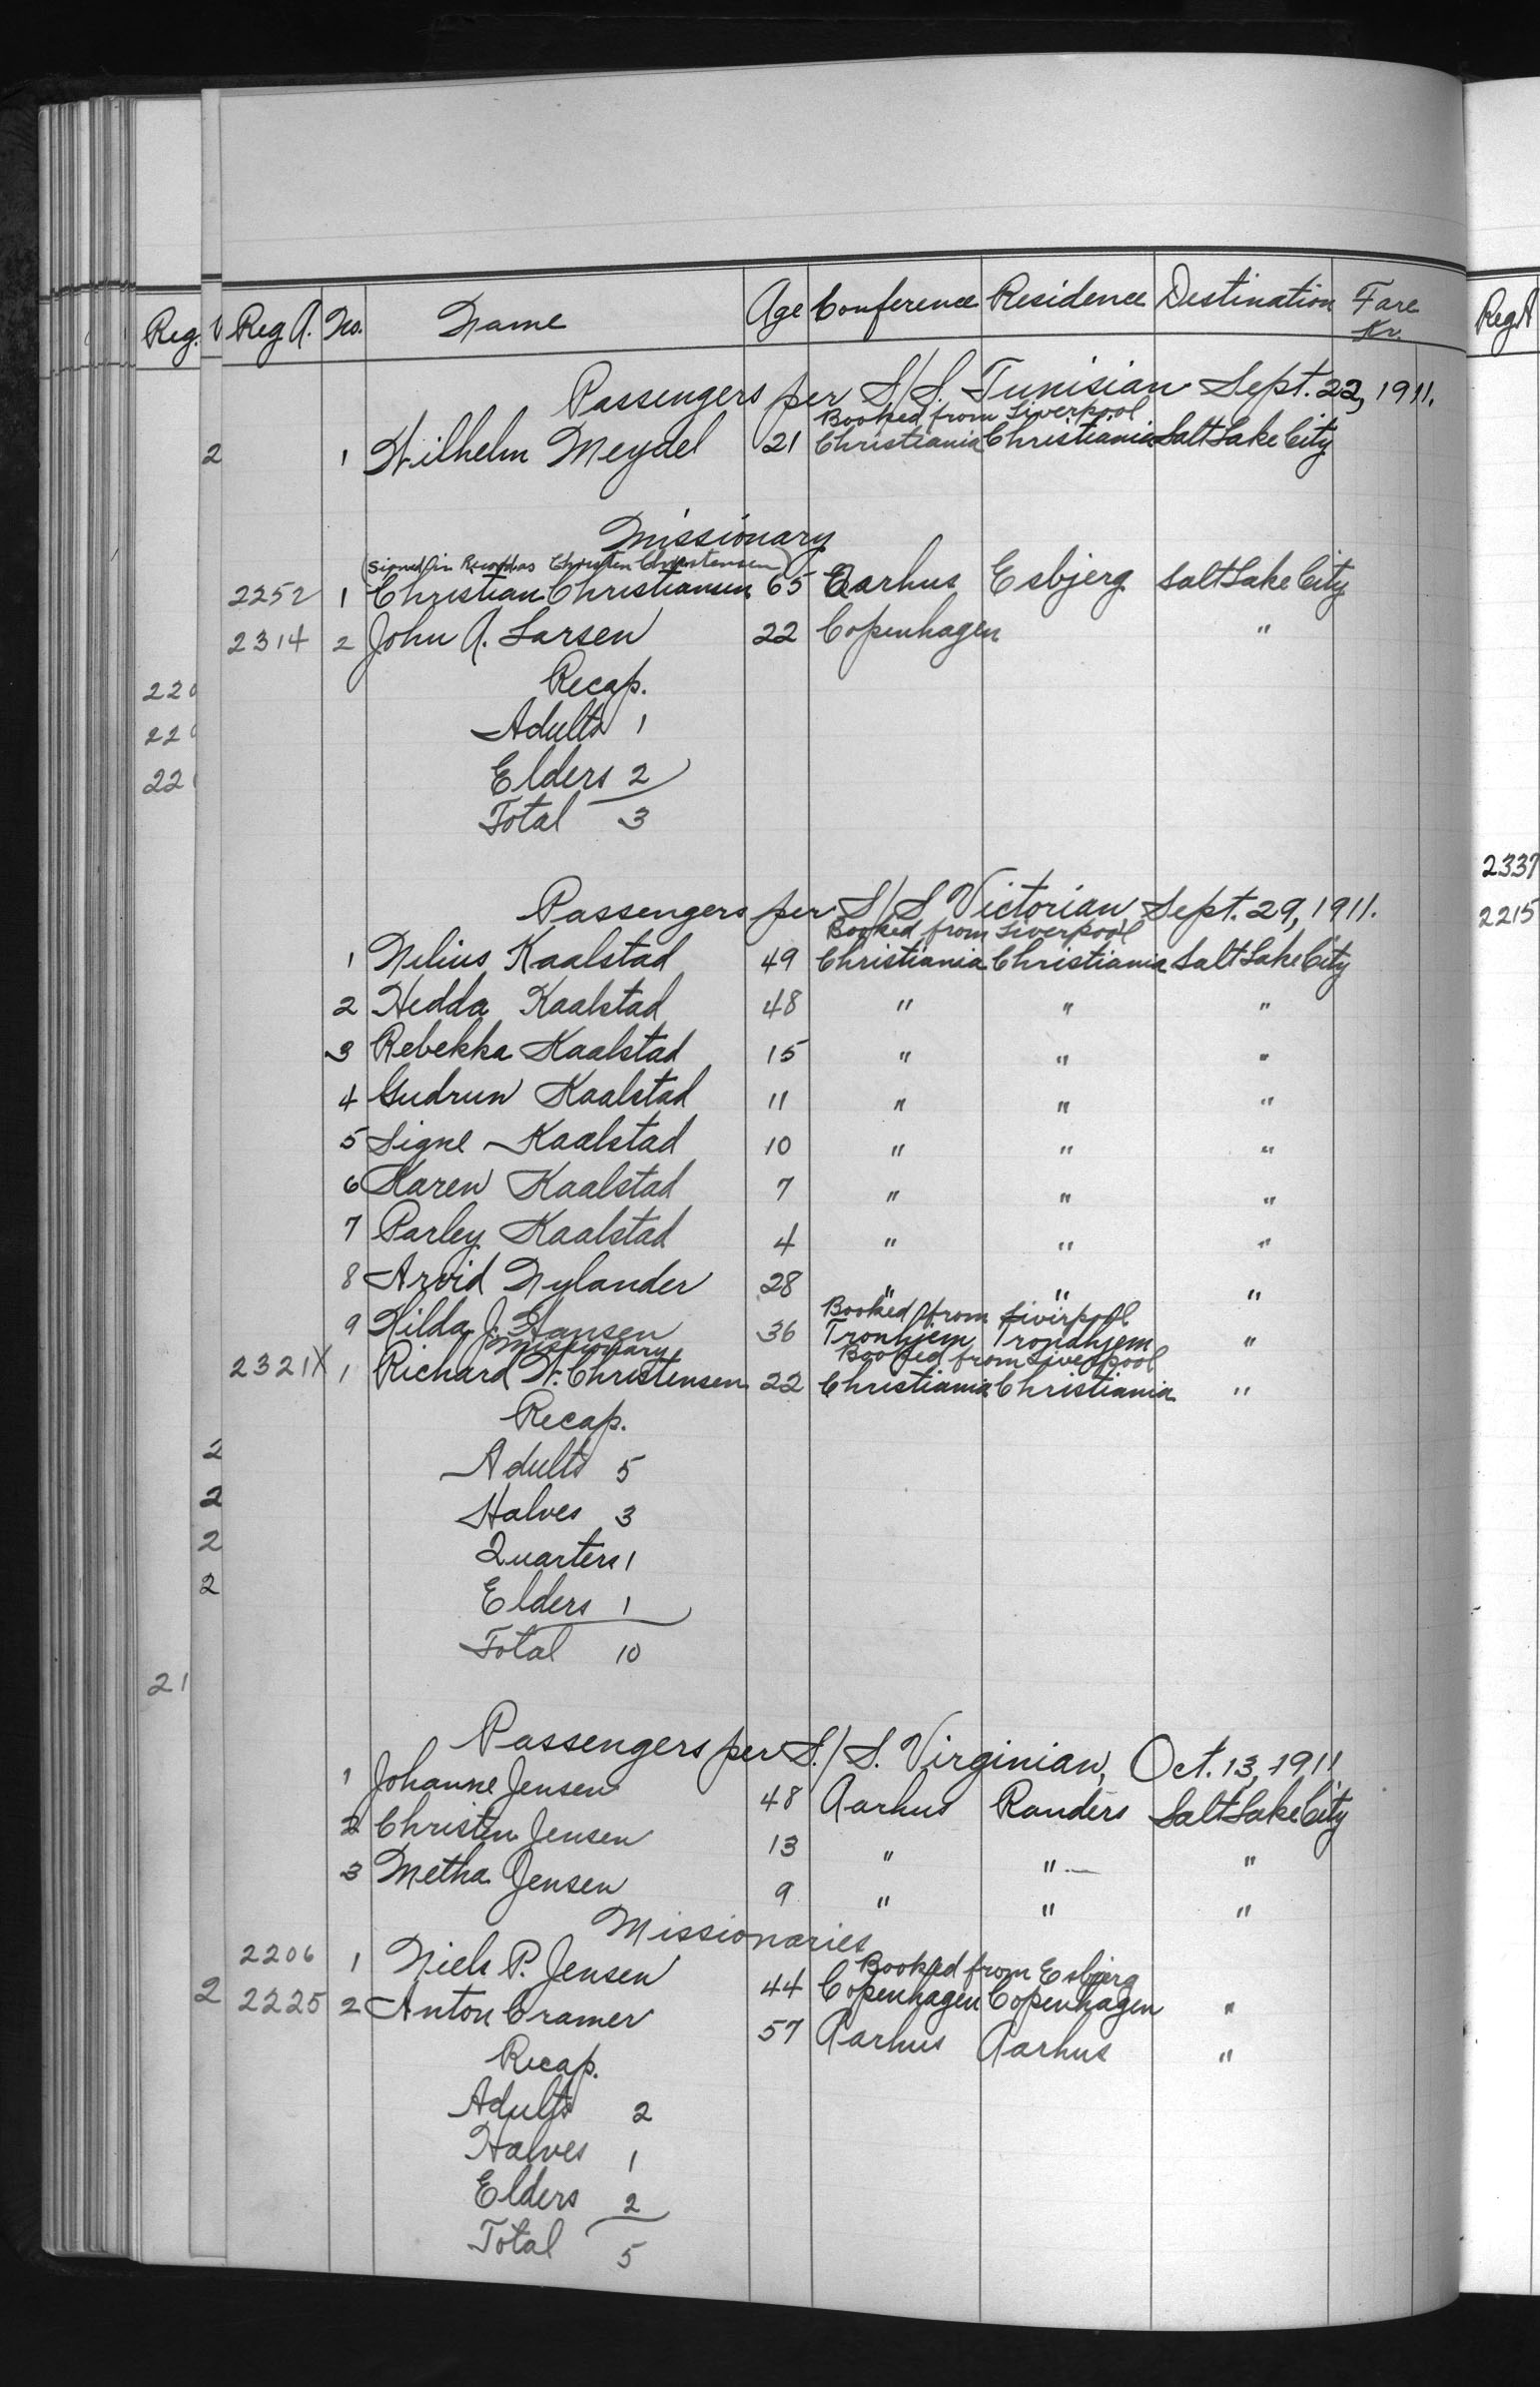 Reg. Reg A. No. Name Age Conference Residence Destination Fare Kr. Reg A
Passengers per S/S. Tunisian Sept. 22, 1911.
Booked from Liverpool
2 1 Wilhelm Meydel 21 Christiania Christiania Salt Lake City
Missionary
(Signed in Record as Christen Christensen)
2252 1 Christian Christiansen 65 Aarhus Esbjerg Salt Lake City
2314 2 John A. Larsen 22 Copenhagen "
Recap.
220
Adults 1
220
Elders 2
22
Total 3
2337
Passengers per S/S Victorian Sept. 29, 1911.
2215
Booked from Liverpool
1 Nelius Kaalstad 49 Christiania Christiania Salt Lake City
2 Hedda Kaalstad 48 " " "
3 Rebekka Kaalstad 15 " " "
4 Gudrun Kaalstad 11 " " "
5 Signe Kaalstad 10 " " "
6 Karen Kaalstad 7 " " "
7 Parley Kaalstad 4 " " "
8 Arvid Nylander 28 " " "
Booked from Liverpool
9 Hilda J. Hansen 36 Tronhjem Trondhjem "
Missionary
Booked from Liverpool
2321 X 1 Richard W. Christensen 22 Christiania Christiania "
Recap.
2
Adults 5
2
Halves 3
2
Quarters 1
2
Elders 1
Total 10
21
Passengers per S./S. Virginian, Oct. 13, 1911
1 Johanne Jensen 48 Aarhus Randers Salt Lake City
2 Christen Jensen 13 " " "
3 Metha Jensen 9 " " "
Missionaries
Booked from Esbjerg
2206 1 Niels P. Jensen 44 Copenhagen Copenhagen "
2 2225 2 Anton Cramer 57 Aarhus Aarhus "
Recap.
Adults 2
Halves 1
Elders 2
Total 5